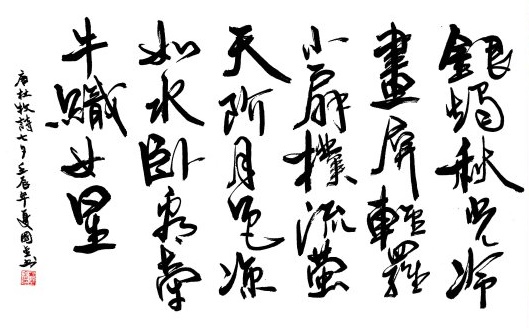 銀燭秋光冷
畫屏輕羅
小扇撲流螢
天阶月色凉
如水卧看牽
牛織女星
唐杜牧詩七夕壬辰年夏國